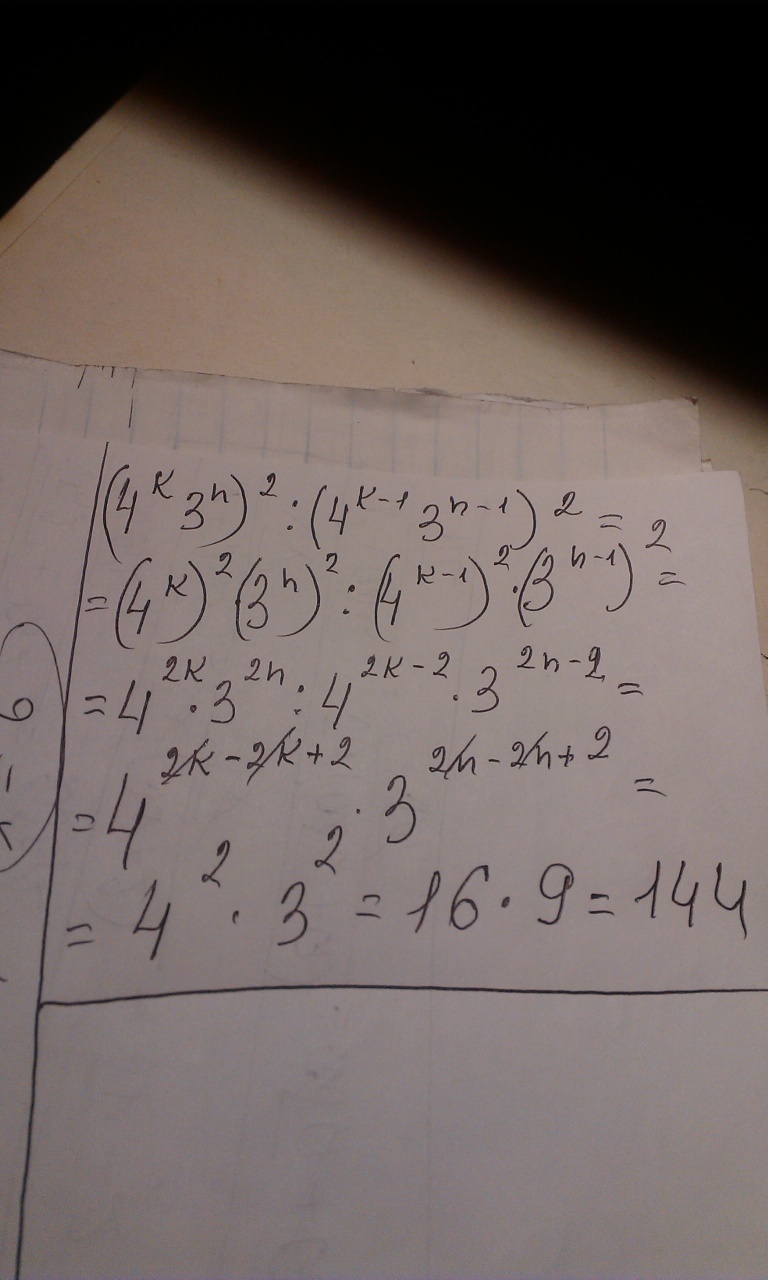 (4^k 3^n)^2 : (4^(k-1) 3^(n-1))^2 =
= (4^k)^2 (3^n)^2 : (4^(k-1))^2 · (3^(n-1))^2 =
= 4^(2k) · 3^(2n) : 4^(2k-2) · 3^(2n-2) =
= 4^(2k-2k+2) · 3^(2n-2n+2) =
= 4^2 · 3^2 = 16 · 9 = 144
6